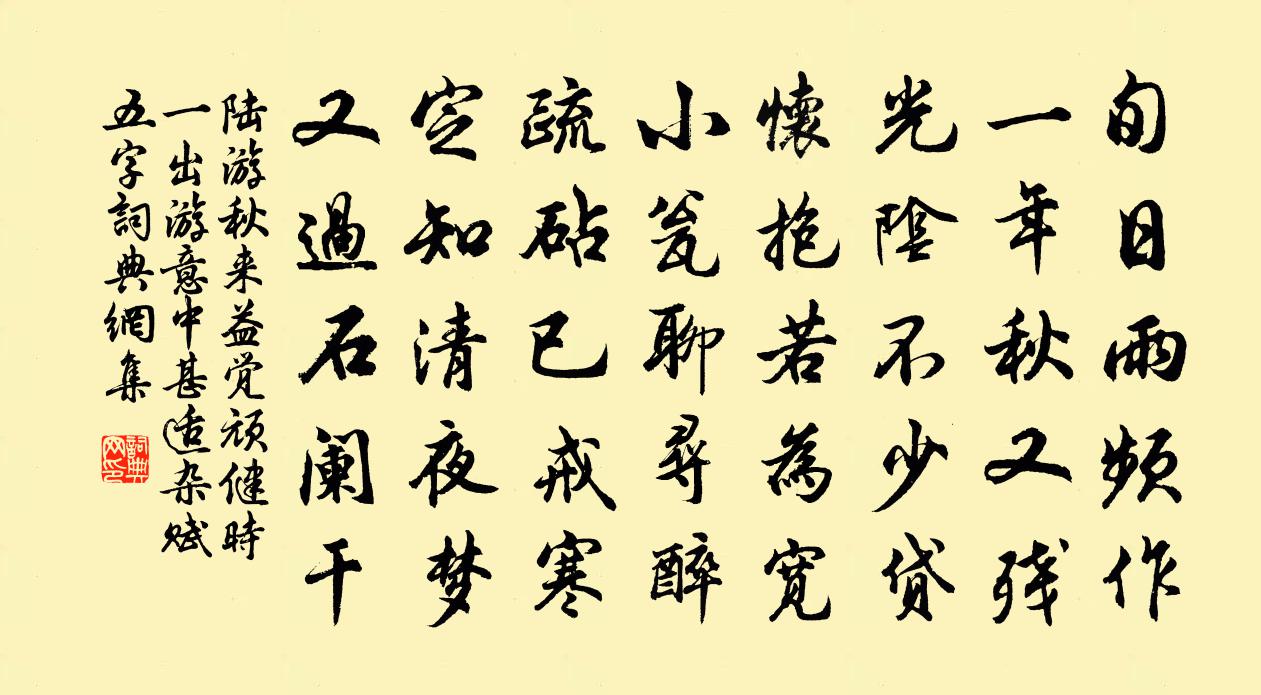 旬日雨頻作
一年秋又残
光陰不少貸
懷抱若為寬
小瓮聊尋醉
疏砧已戒寒
定知清夜梦
又過石阑干
陆游秋来益觉顽健時
一出游意中甚适杂赋
五字詞典網集
詞典网印